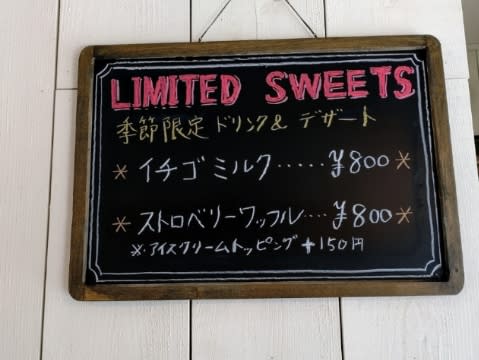 LIMITED SWEETS
季節限定 ドリンク & デザート
* イチゴミルク..... ¥800 *
* ストロベリーワッフル.... ¥800 *
※.アイスクリームトッピング +150円